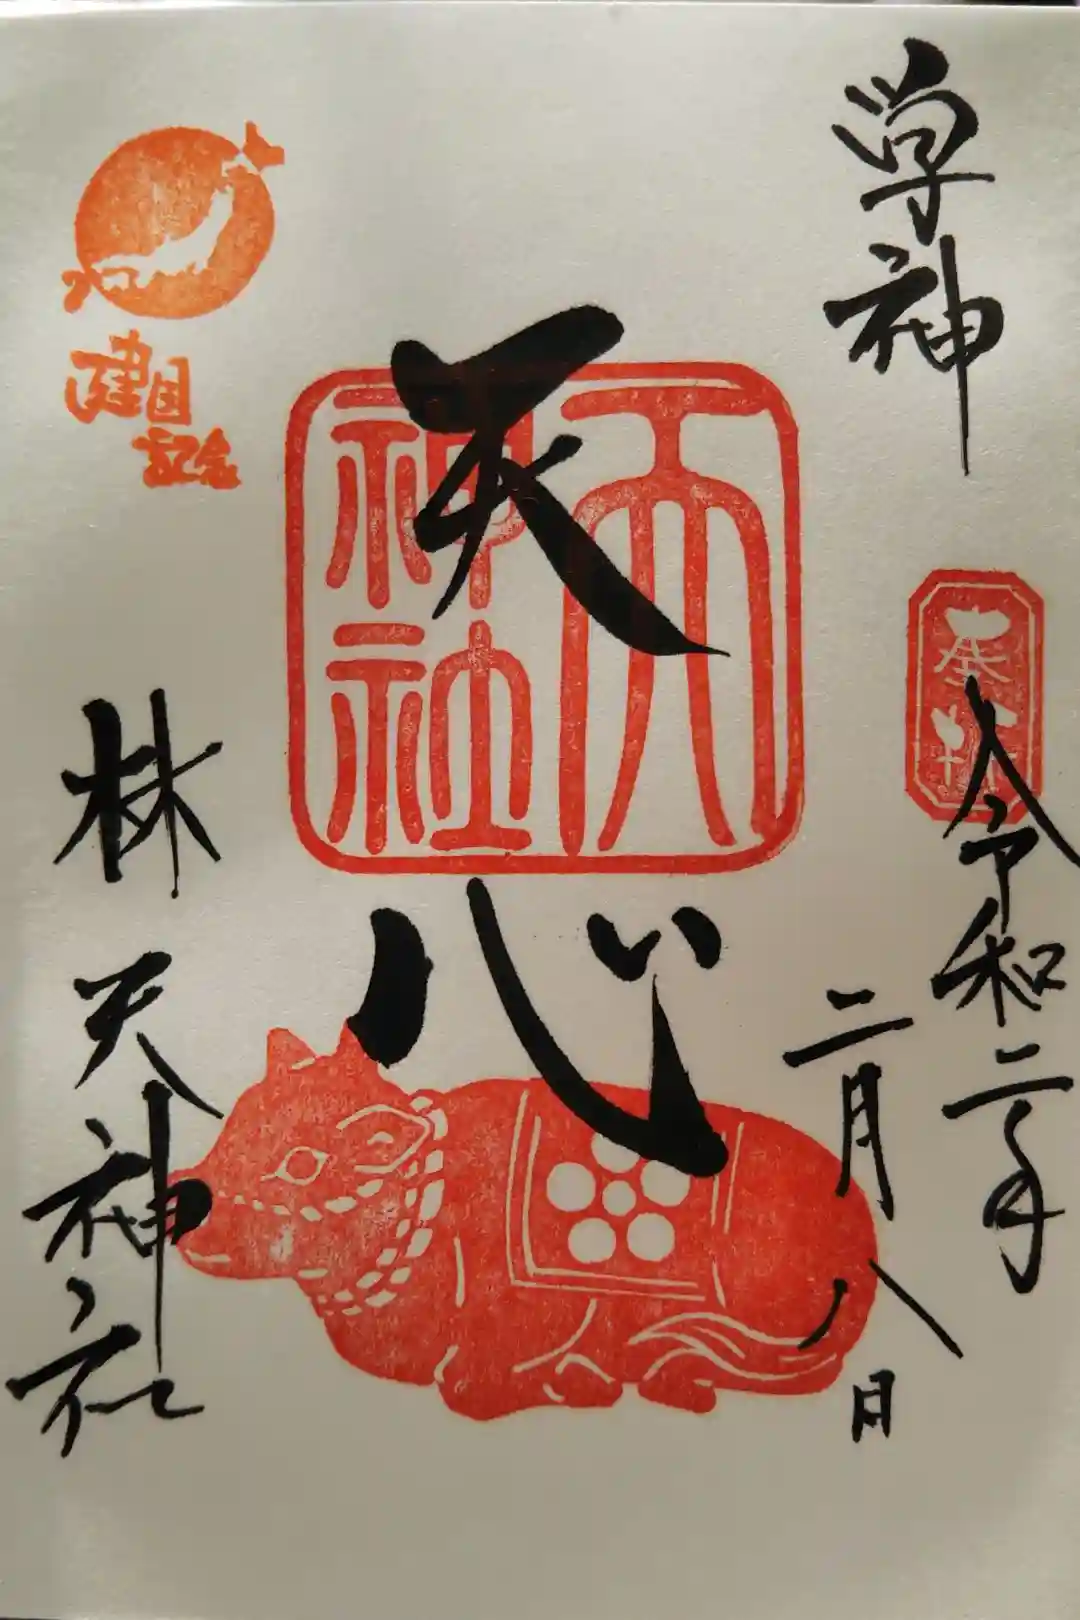 学神
奉拝
令和二年
二月八日
天心
天神社
建国
記念
林天神社